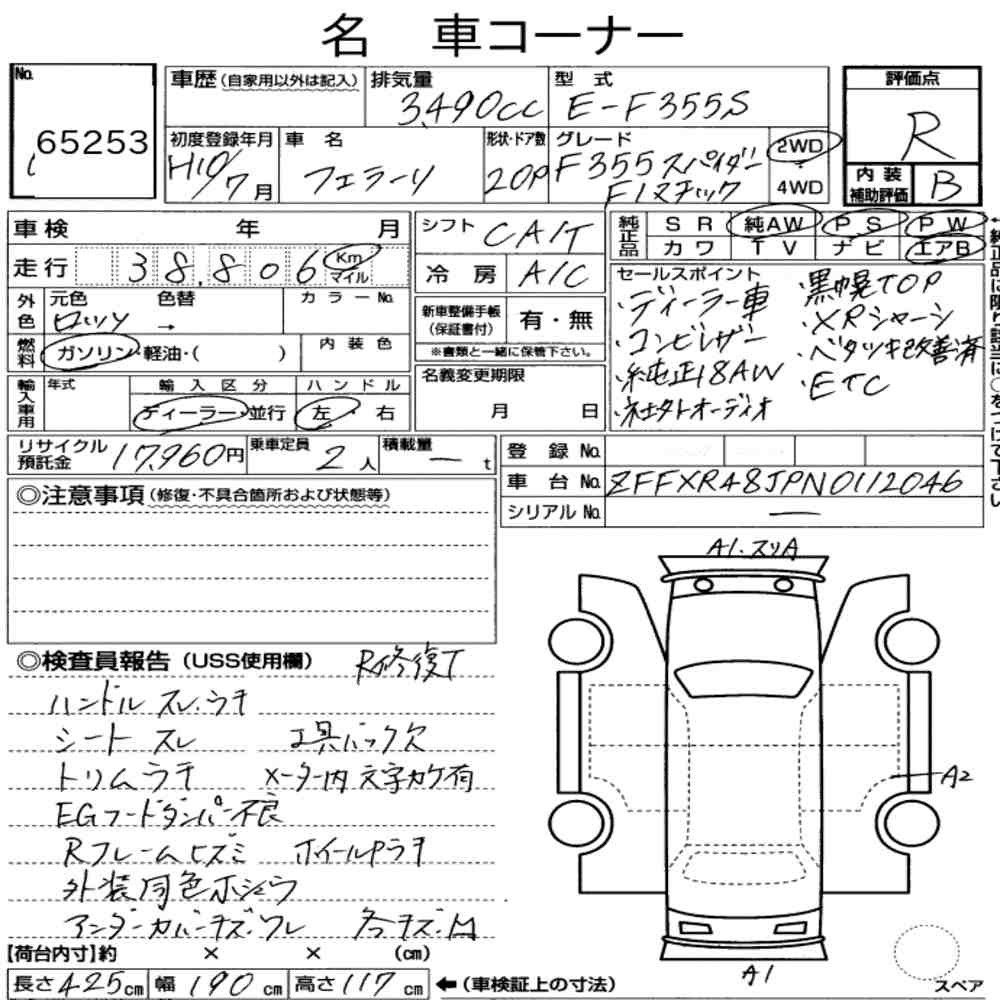 名 車コーナー
No.
65253
車歴(自家用以外は記入)
排気量
3,490cc
型 式
E-F355S
評価点
R
初度登録年月
H10/7月
車 名
フェラーリ
形状・ドア数
2OP
グレード
F355スパイダー
F1スチック
2WD
・
4WD
内 装
補助評価
B
車 検 年 月
シフト
CA/T
純正品
S R 純AW P S P W
カ ワ T V ナ ビ エアB
走 行
38,806
Km
マイル
冷 房
A/C
セールスポイント
・ディーラー車
・コンビレザー
・純正18AW
・社外オーディオ
・黒幌TOP
・XRシャーシ
・ベタツキ改善済
・ETC
外色
元色 色替
ロッソ →
カラーNo.
新車整備手帳
(保証書付)
有・無
※書類と一緒に保管下さい。
燃料
ガソリン・軽油・( )
内 装 色
名義変更期限
月 日
輸入車用
年式
輸 入 区 分
ディーラー・並行
ハ ン ド ル
左・右
リサイクル
預託金
17,960円
乗車定員
2人
積載量
— t
登 録 No.
車 台 No.
ZFFXR48JPN0112046
シリアル No.
—
◎注意事項(修復・不具合箇所および状態等)
◎検査員報告(USS使用欄)
R修復T
ハンドル スレ.ウチ
シート スレ 工具バック欠
トリムウチ メーター内文字カケ有
EGフードダンパー不良
Rフレームヒズミ ホイールPラチ
外装同色ホシュウ
アンダーカバーキズ.ワレ 各キズ.凹
A1.スリA
A2
A1
スペア
【荷台内寸】約 × × (cm)
長さ425cm 幅190cm 高さ117cm ←(車検証上の寸法)